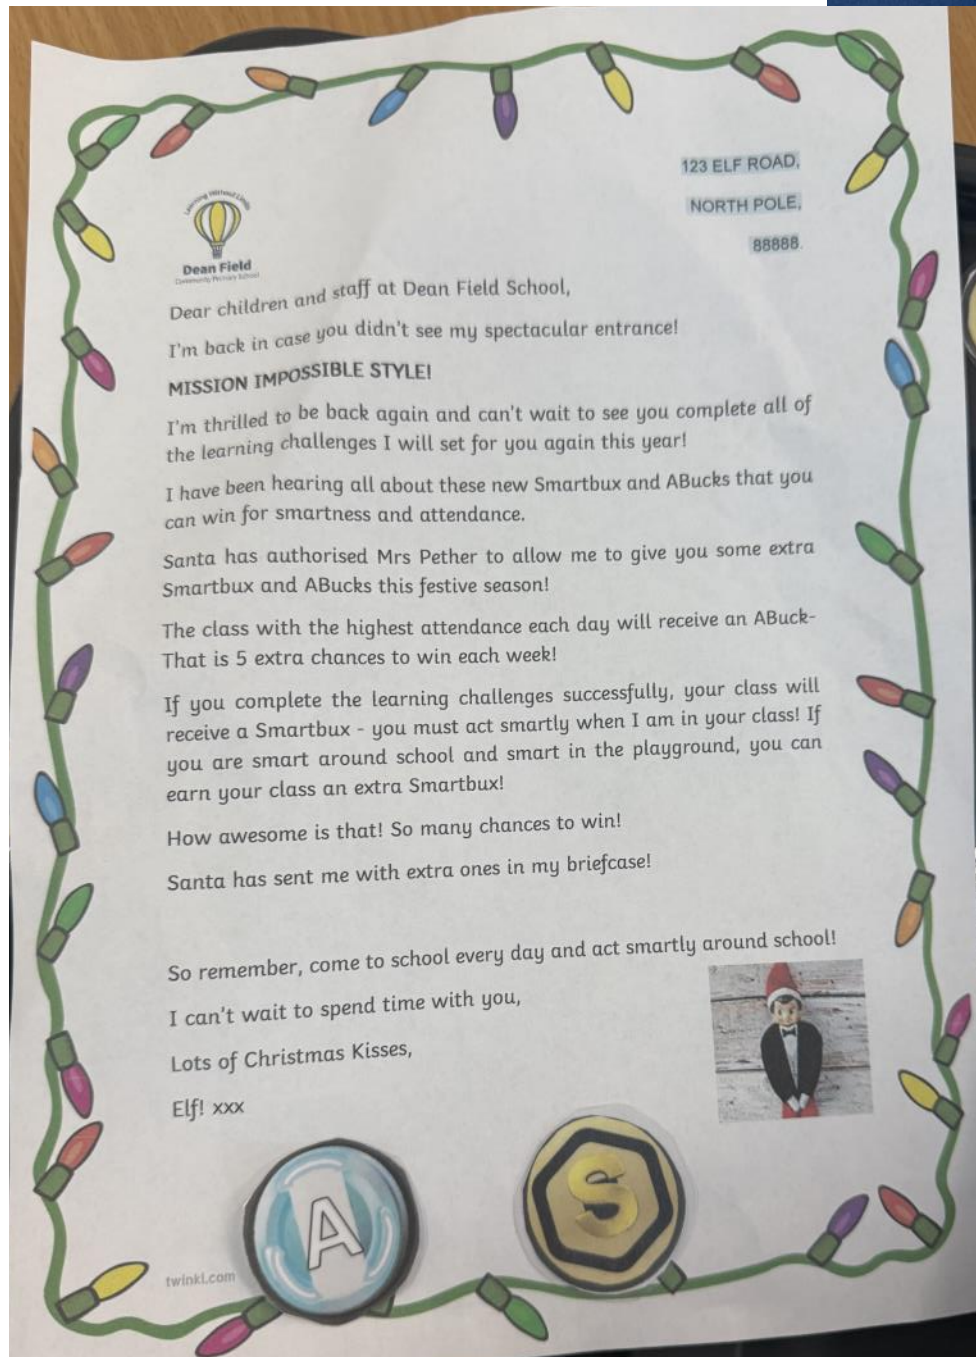 123 ELF ROAD,
NORTH POLE,
88888.
Learning Without Limits
Dean Field
Community Primary School
Dear children and staff at Dean Field School,
I'm back in case you didn't see my spectacular entrance!
MISSION IMPOSSIBLE STYLE!
I'm thrilled to be back again and can't wait to see you complete all of
the learning challenges I will set for you again this year!
I have been hearing all about these new Smartbux and ABucks that you
can win for smartness and attendance.
Santa has authorised Mrs Pether to allow me to give you some extra
Smartbux and ABucks this festive season!
The class with the highest attendance each day will receive an ABuck-
That is 5 extra chances to win each week!
If you complete the learning challenges successfully, your class will
receive a Smartbux - you must act smartly when I am in your class! If
you are smart around school and smart in the playground, you can
earn your class an extra Smartbux!
How awesome is that! So many chances to win!
Santa has sent me with extra ones in my briefcase!
So remember, come to school every day and act smartly around school!
I can't wait to spend time with you,
Lots of Christmas Kisses,
Elf! xxx
A
S
twinkl.com